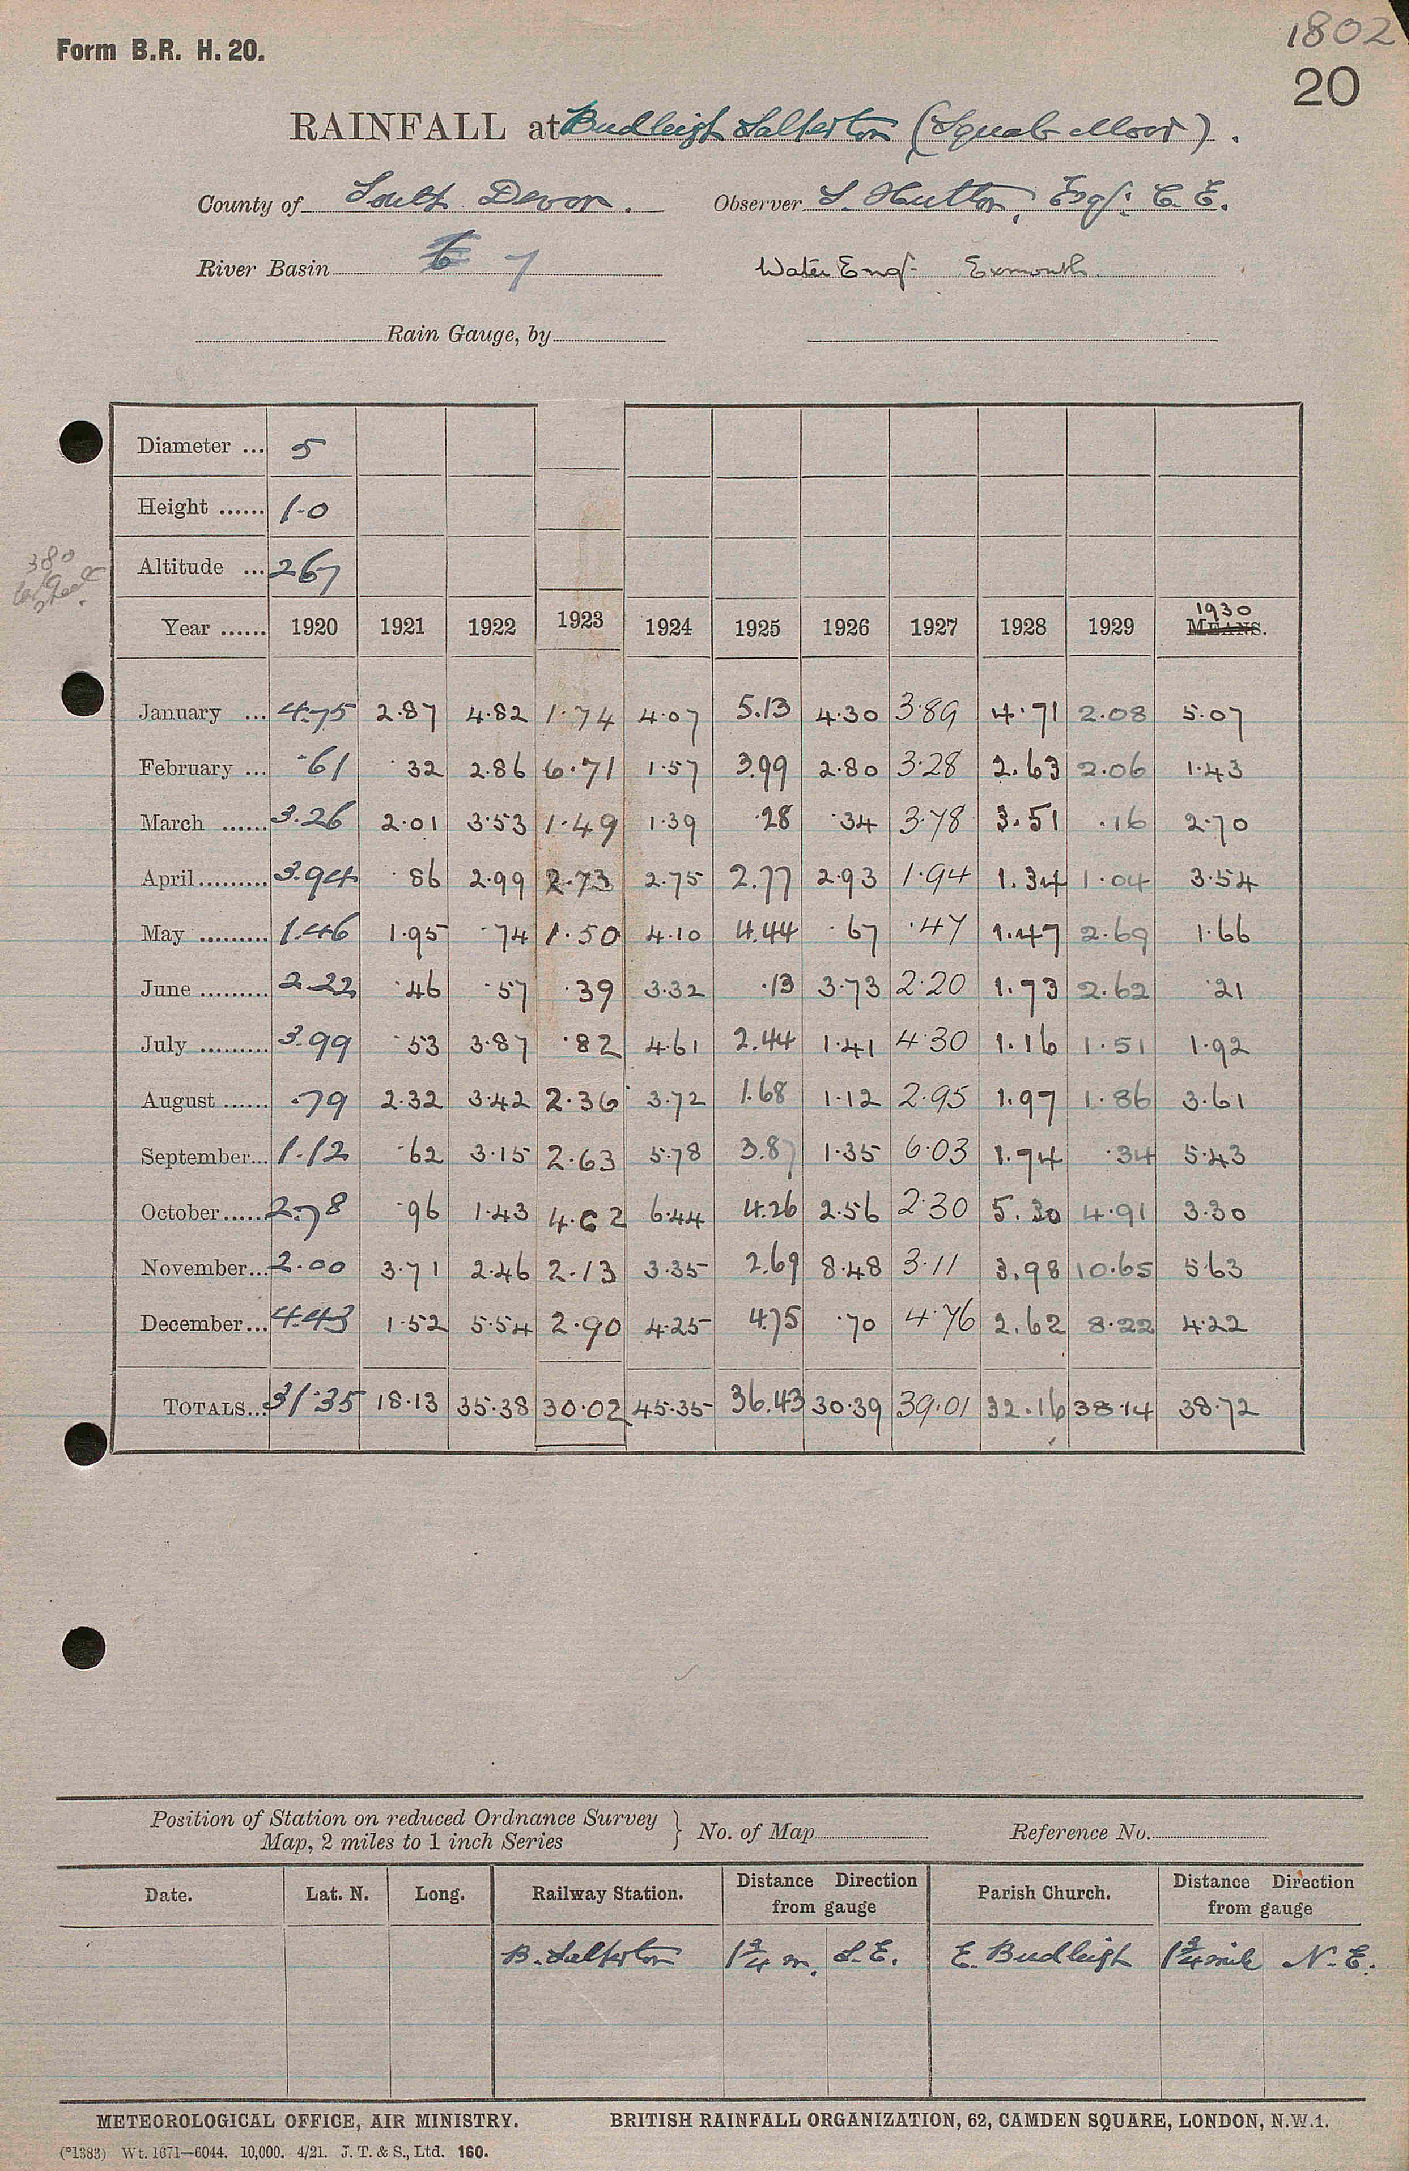 1802
Form B.R. H. 20.
20
RAINFALL at Budleigh Salterton (Squab Moor).
County of South Devon. Observer S. Hutton, Esq. C. E.
River Basin 6 7 Water Eng. Exmouth.
Rain Gauge, by
Diameter ... 5
Height ...... 1.0
380
Altitude ... 267
Year ...... 1920 1921 1922 1923 1924 1925 1926 1927 1928 1929 1930 MEANS.
January ... 4.75 2.87 4.82 1.74 4.07 5.13 4.30 3.89 4.71 2.08 5.07
February ... .61 .32 2.86 6.71 1.57 3.99 2.80 3.28 2.63 2.06 1.43
March ...... 3.26 2.01 3.53 1.49 1.39 .28 .34 3.78 3.51 .16 2.70
April ......... 3.94 .86 2.99 2.73 2.75 2.77 2.93 1.94 1.34 1.04 3.54
May ......... 1.46 1.95 .74 1.50 4.10 4.44 .67 .47 1.47 2.69 1.66
June ......... 2.22 .46 .57 .39 3.32 .13 3.73 2.20 1.73 2.62 .21
July ......... 3.99 .53 3.87 .82 4.61 2.44 1.41 4.30 1.16 1.51 1.92
August ...... .79 2.32 3.42 2.36 3.72 1.68 1.12 2.95 1.97 1.86 3.61
September... 1.12 .62 3.15 2.63 5.78 3.87 1.35 6.03 1.74 .34 5.43
October...... 2.78 .96 1.43 4.62 6.44 4.26 2.56 2.30 5.30 4.91 3.30
November... 2.00 3.71 2.46 2.13 3.35 2.69 8.48 3.11 3.98 10.65 5.63
December... 4.43 1.52 5.54 2.90 4.25 4.75 .70 4.76 2.62 8.22 4.22
TOTALS... 31.35 18.13 35.38 30.02 45.35 36.43 30.39 39.01 32.16 38.14 38.72
Position of Station on reduced Ordnance Survey
Map, 2 miles to 1 inch Series } No. of Map Reference No.
Date. Lat. N. Long. Railway Station. Distance Direction from gauge Parish Church. Distance Direction from gauge
B. Salterton 1 3/4 m. S.E. E. Budleigh 1 3/4 mile N.E.
METEOROLOGICAL OFFICE, AIR MINISTRY. BRITISH RAINFALL ORGANIZATION, 62, CAMDEN SQUARE, LONDON, N.W.1.
(*1383) Wt. 1671—6044. 10,000. 4/21. J. T. & S., Ltd. 160.